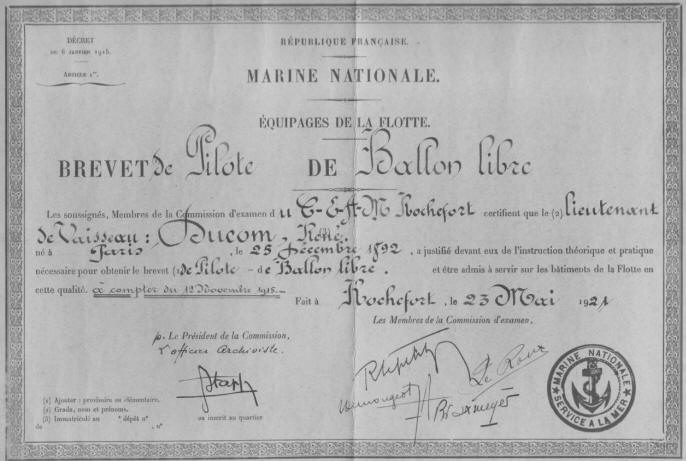 DÉCRET
DU 6 JANVIER 1915.
ARTICLE 1er.
RÉPUBLIQUE FRANÇAISE.
MARINE NATIONALE.
ÉQUIPAGES DE LA FLOTTE.
BREVET de Pilote DE Ballon libre
Les soussignés, Membres de la Commission d'examen du C-E-A-M Rochefort certifient que le (2) lieutenant
de Vaisseau : Ducom, René.
né à Paris, le 25 Décembre 1892, a justifié devant eux de l'instruction théorique et pratique
nécessaire pour obtenir le brevet (1 de Pilote - de Ballon libre. et être admis à servir sur les bâtiments de la Flotte en
cette qualité. à compter du 12 Novembre 1915.-
Fait à Rochefort, le 23 Mai 1921
Les Membres de la Commission d'examen,
p. Le Président de la Commission,
L'officier Archiviste.
Le Roux
(1) Ajouter : provisoire ou élémentaire.
(2) Grade, nom et prénoms.
(3) Immatriculé au e dépôt n° ou inscrit au quartier
de , n°
MARINE NATIONALE
SERVICE A LA MER